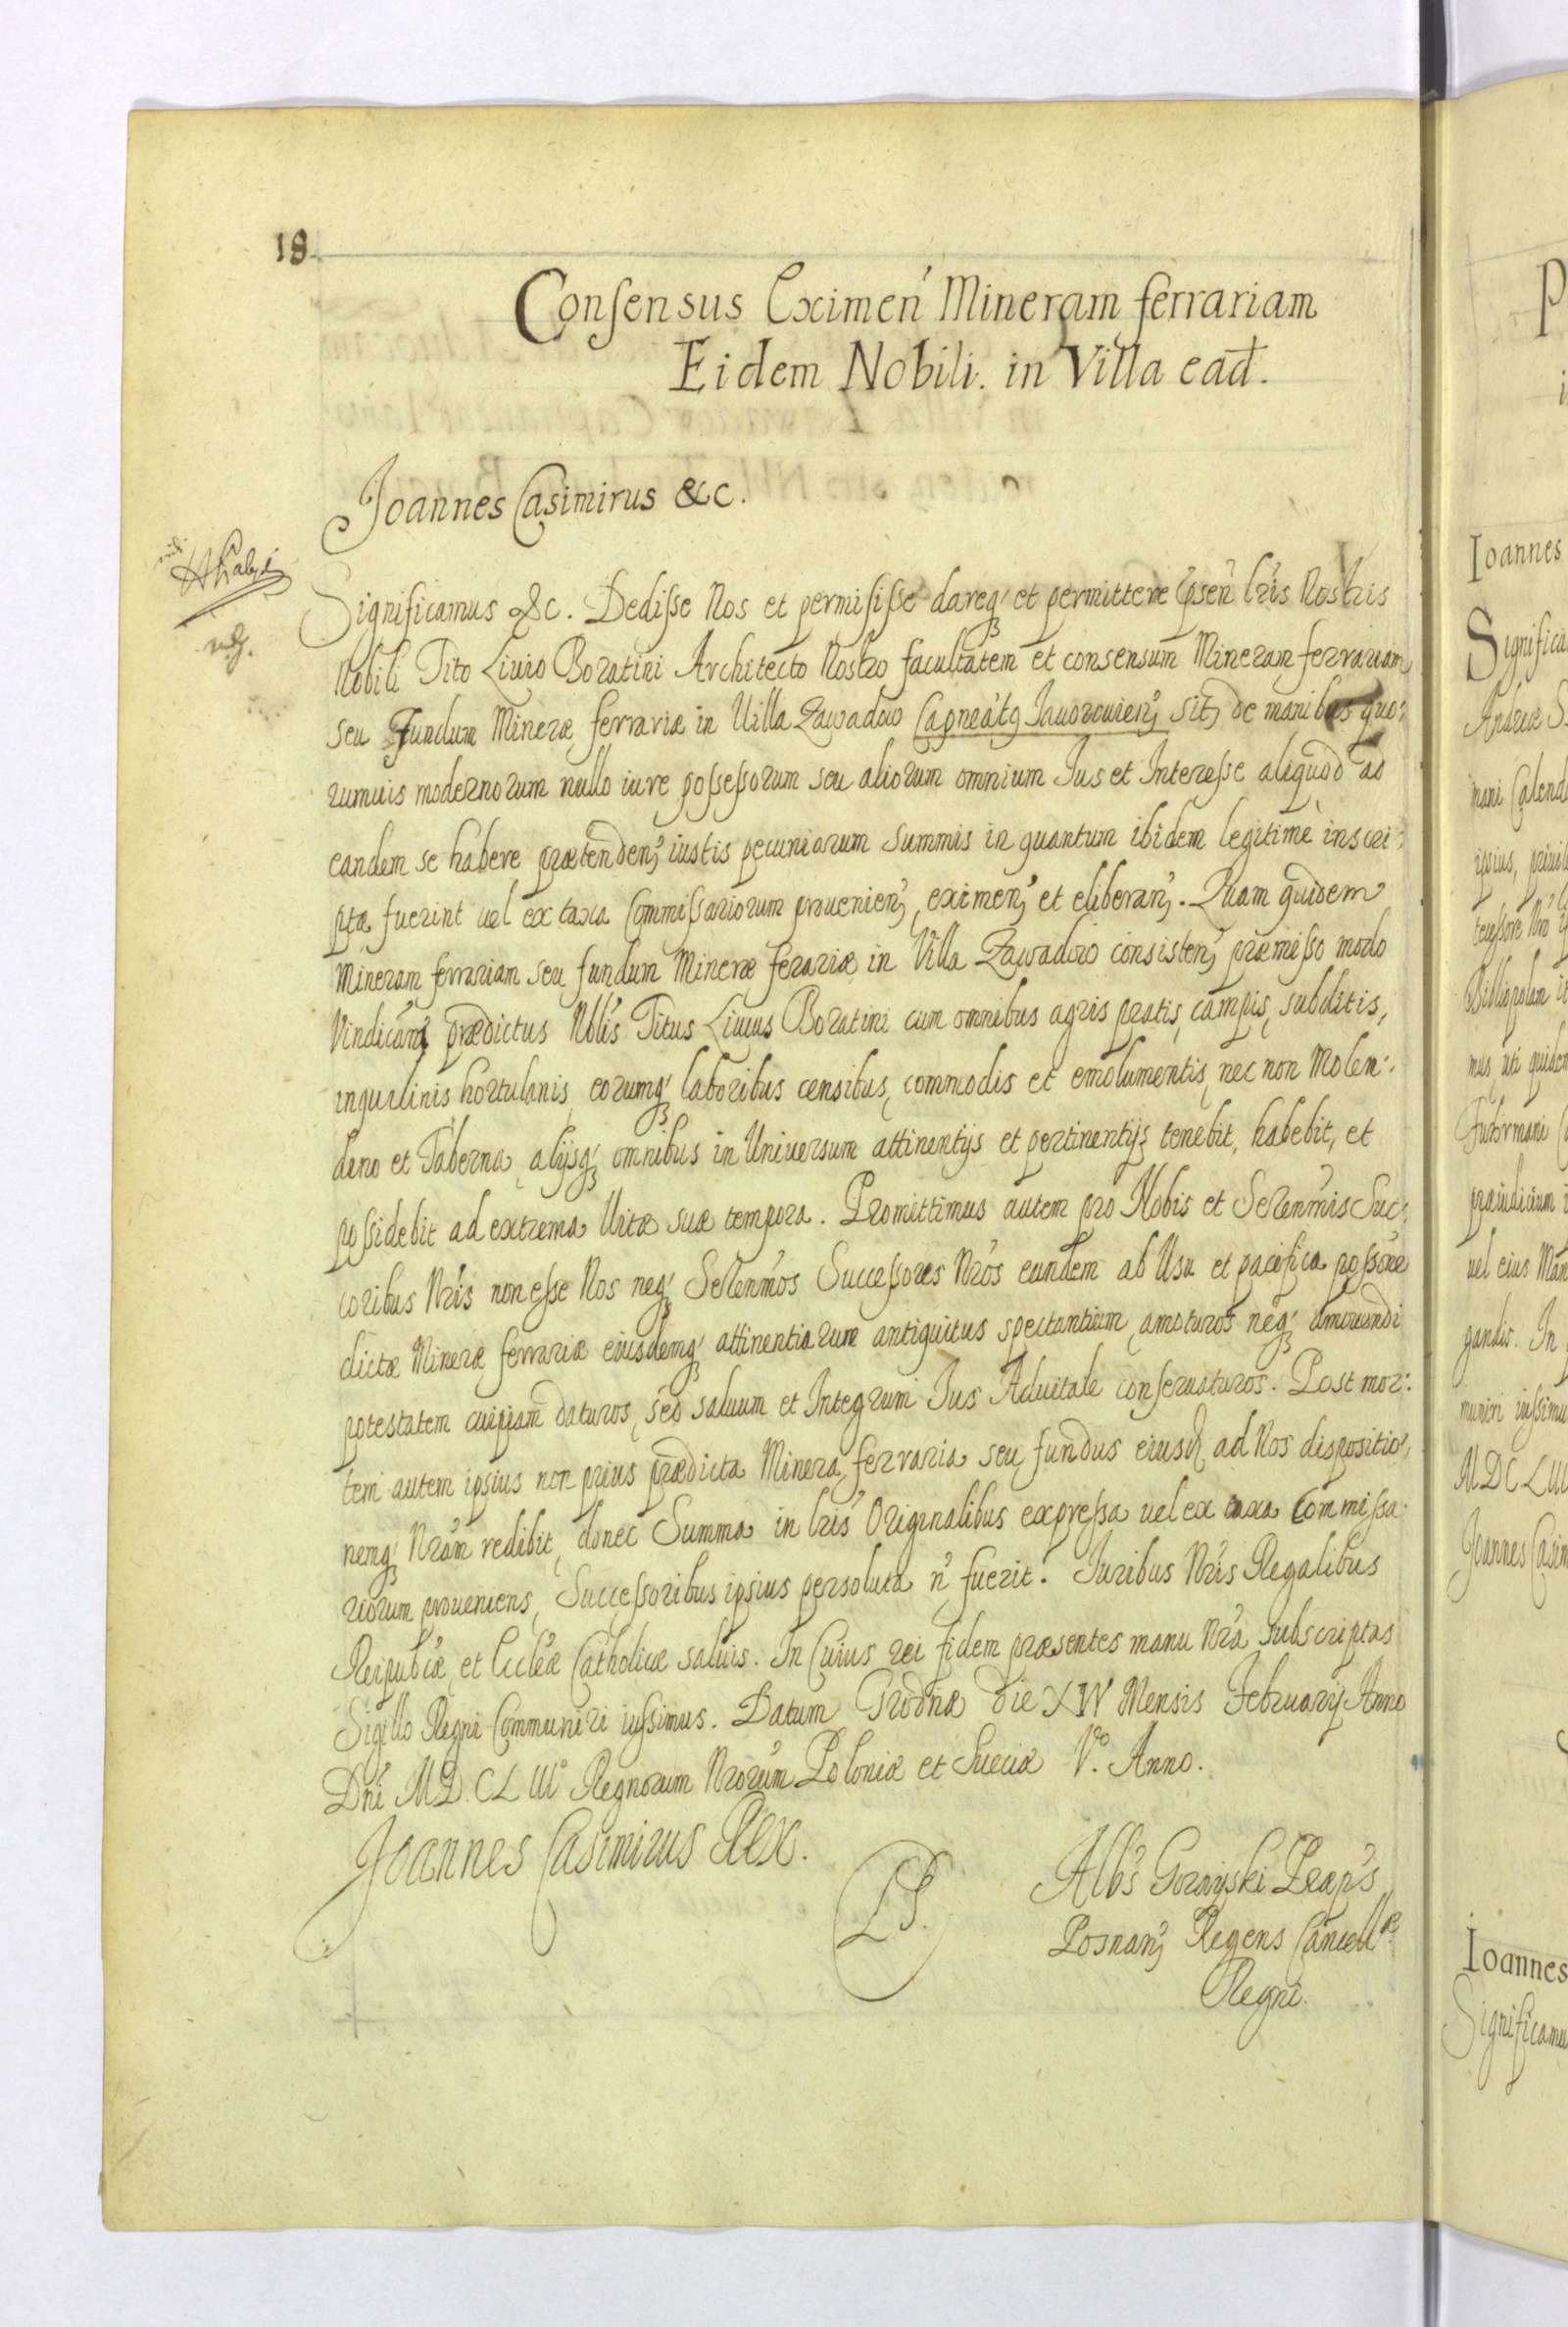 18
Consensus Eximen' Mineram ferrariam
Eidem Nobili. in Villa ead.
Joannes Casimirus &c.
Significamus &c. Dedisse Nos et permisisse dareq' et permittere psen' lris Nostris
Nobili Tito Liuio Boratini Architecto Nostro facultatem et consensum Mineram ferrariam
seu Fundum Mineræ ferrariæ in Uilla Zawadow Capneatq Jauorouien, sit, de manibus quo:
rumuis modernorum nullo iure possessorum seu aliorum omnium Jus et Interesse aliquod ad
eandem se habere prætenden, iustis pecuniarum summis in quantum ibidem legitimè inscri:
ptæ fuerint uel ex taxa Commissariorum prouenien, eximen, et eliberan,. Quam quidem
Mineram ferrariam seu fundum Mineræ ferariæ in Villa Zawadow consisten, præmisso modo
Vindicam, prædictus Nblis Titus Liuius Boratini cum omnibus agris pratis, campis, subditis,
inquilinis hortulanis, eorumq' laboribus censibus, commodis et emolumentis, nec non Molen:
dino et Taberna, alijsq' omnibus in Uniuersum attinentijs et pertinentijs tenebit, habebit, et
possidebit ad extrema Uitæ suæ tempora. Promittimus autem pro Nobis et Serenmis Suc:
coribus Nris non esse Nos neq' Serenmos Successores Nros eundem ab Usu et pacifica possone
dictæ Mineræ ferrariæ eiusdemq' attinentiarum antiquitus spectantium, amoturos neq' amouendi
potestatem cuipiam daturos, sed saluum et Integrum Jus Aduitale conseruaturos. Post mor:
tem autem ipsius non prius prædicta Minera ferraria seu fundus eiusd ad Nos dispositio:
nemq' Nram redibit, donec Summa in lris Originalibus expressa uel ex taxa Commissa:
riorum proueniens, Successoribus ipsius persoluta n' fuerit. Juribus Nris Regalibus
Reipubcæ, et Eccleæ Catholicæ saluis. In Cuius rei fidem præsentes manu Nra subscriptas
Sigillo Regni Communiri iussimus. Datum Grodnæ die XIV Mensis Februarij Anno
Dni M.D.C.LIII° Regnorum Nrorum Poloniæ et Sueciæ V° Anno.
Joannes Casimirus Rex.
LS.
Albs Gorayski Præps
Posnan, Regens Cancellæ
Regni.
P
Ioannes
Significa
Andreæ S
mani Calend
ipsius, priuil
tessore Nro
Bibliopolam
mus, uti quidem
præiudicium
uel eius Man
gandis. In
muniri iussimu
M D C L
Joannes Casim
Ioannes
Significamu